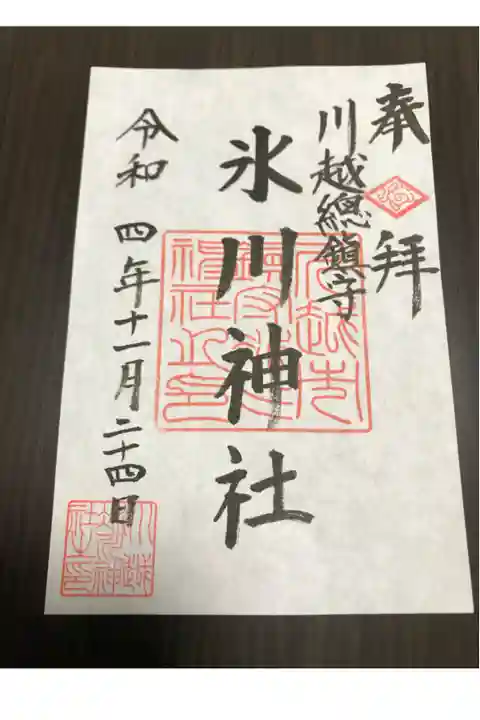 奉拜
川越總鎮守
氷川神社
令和四年十一月二十四日